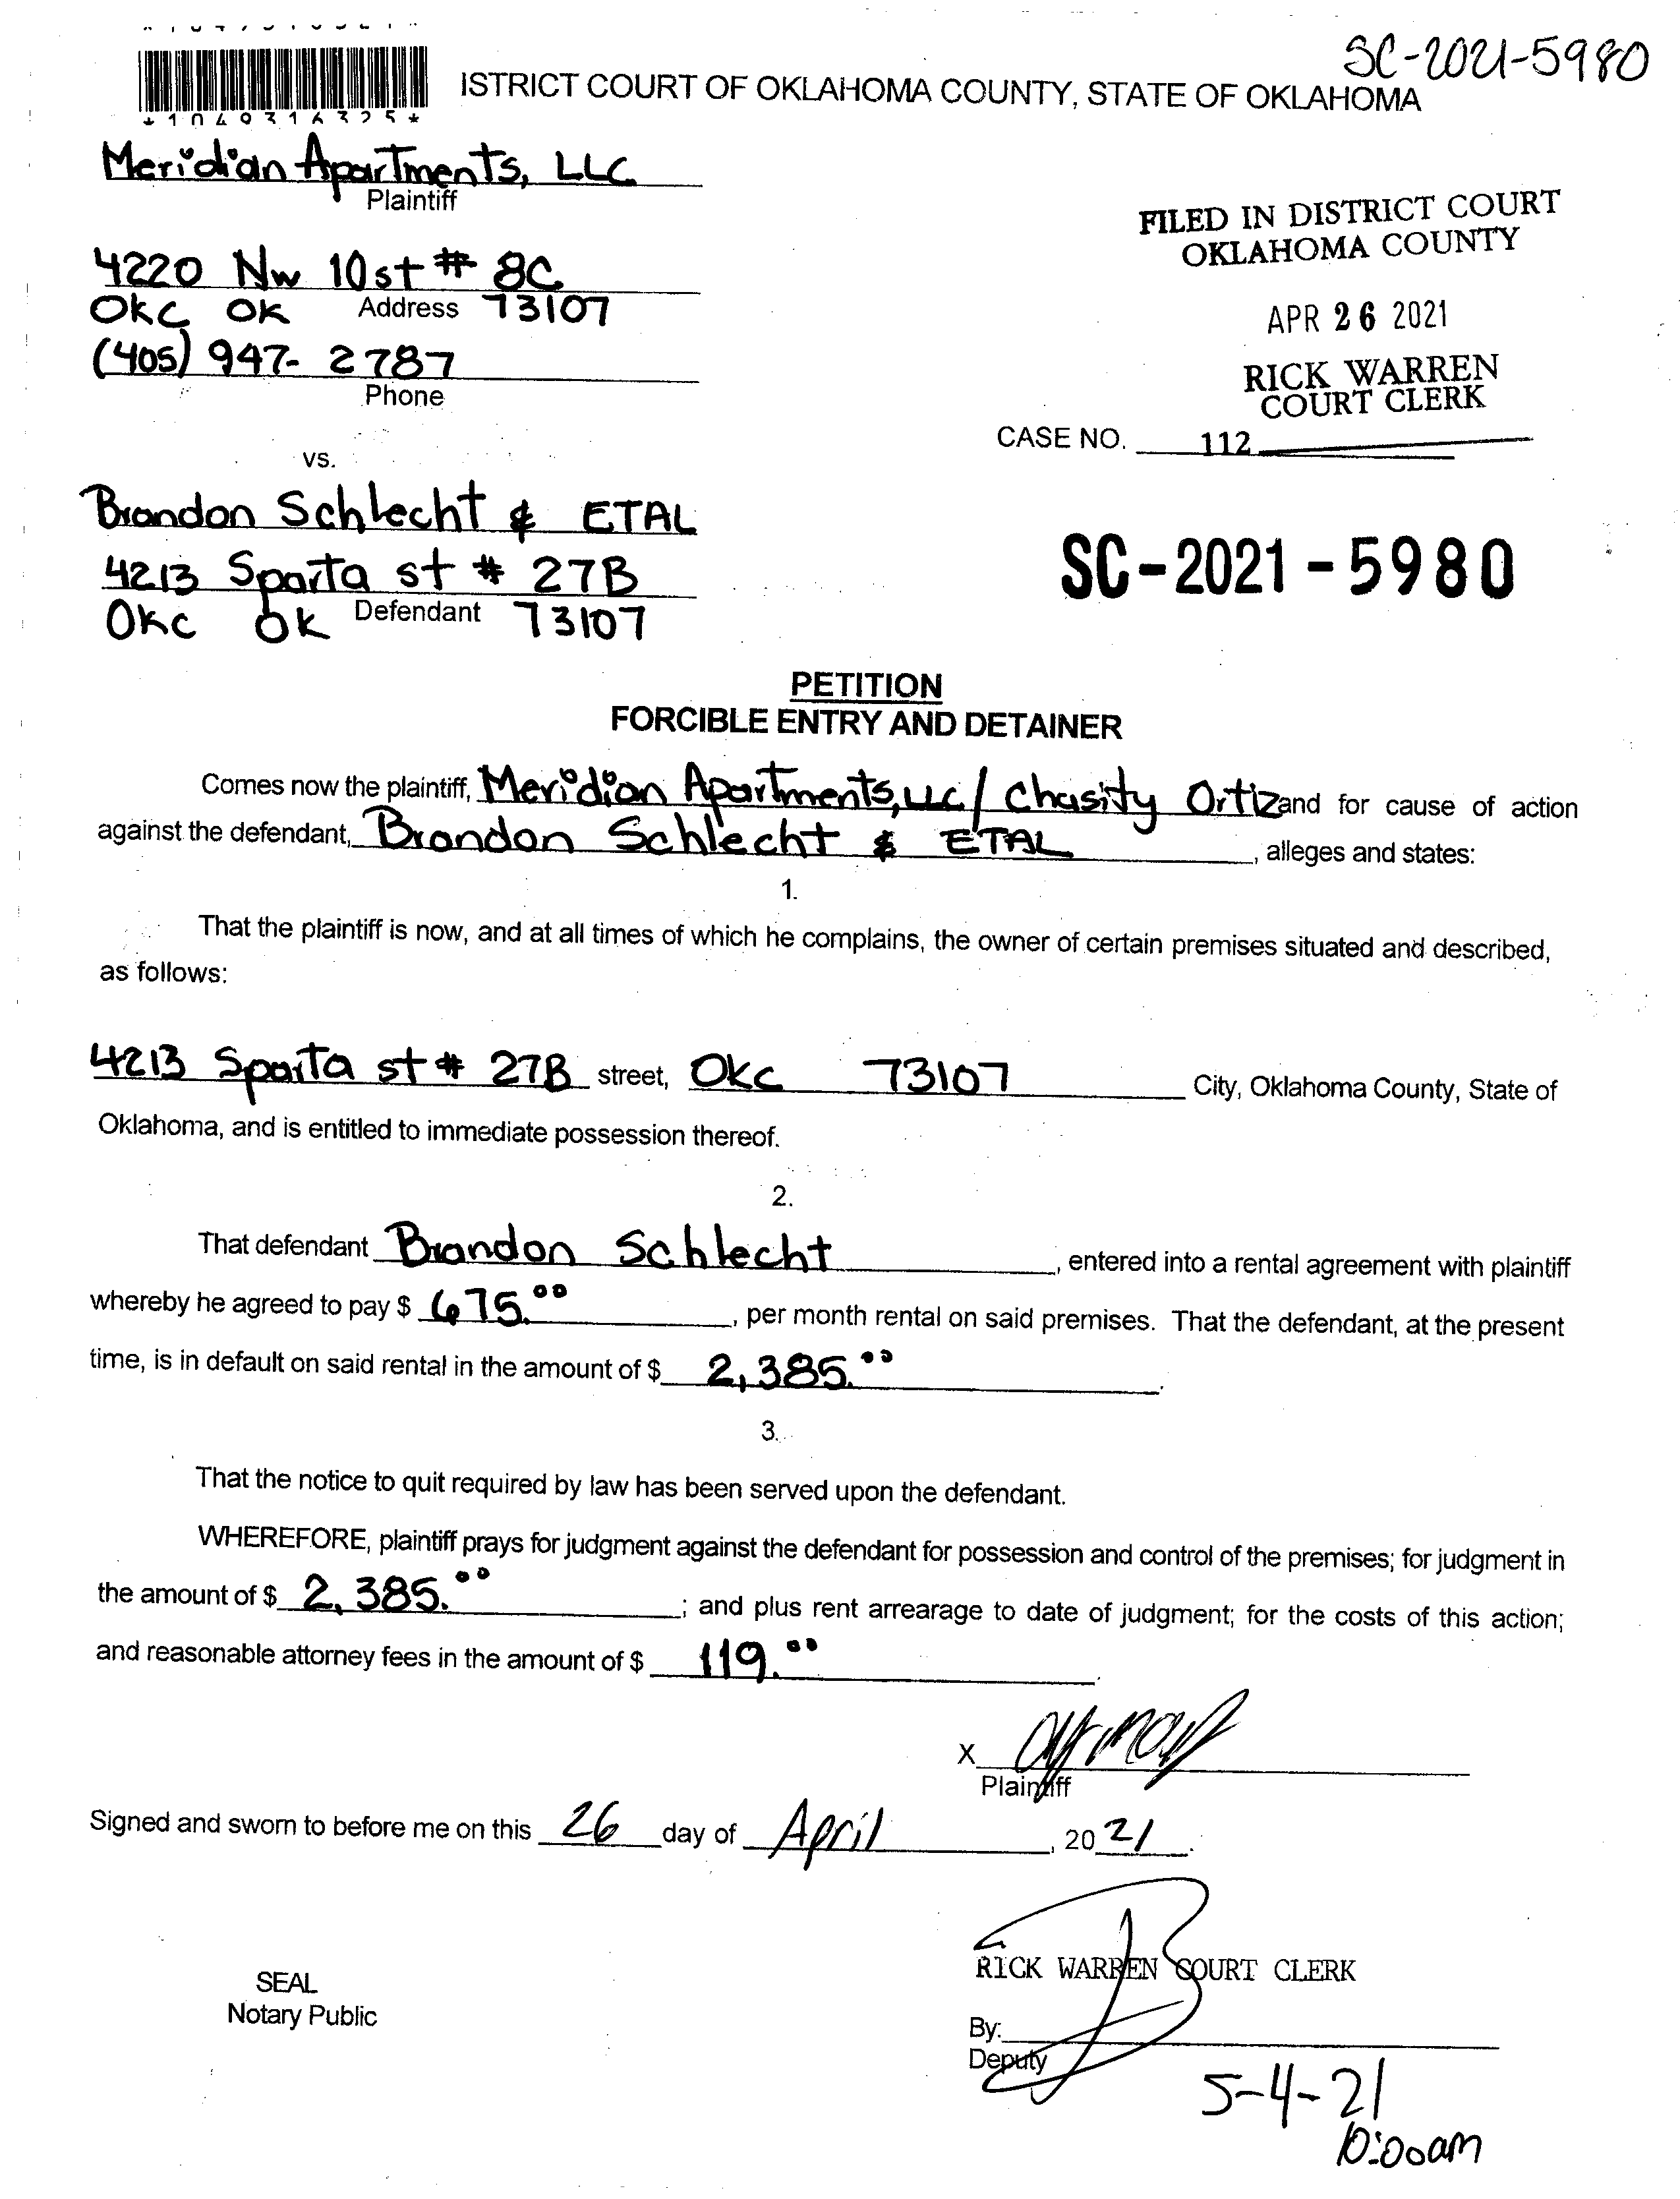 SC-2021-5980
ISTRICT COURT OF OKLAHOMA COUNTY, STATE OF OKLAHOMA
*1049316325*
Meridian Apartments, LLC
Plaintiff
FILED IN DISTRICT COURT
OKLAHOMA COUNTY
4220 NW 10st # 8C
OKC OK Address 73107
APR 26 2021
(405) 947-2787
Phone
RICK WARREN
COURT CLERK
CASE NO. 112
vs.
Brandon Schlecht & ETAL
4213 Sparta st # 27B
OKC OK Defendant 73107
SC-2021-5980
PETITION
FORCIBLE ENTRY AND DETAINER
Comes now the plaintiff, Meridian Apartments, LLC / Chasity Ortiz and for cause of action
against the defendant, Brandon Schlecht & ETAL, alleges and states:
1.
That the plaintiff is now, and at all times of which he complains, the owner of certain premises situated and described,
as follows:
4213 Sparta st # 27B street, OKC 73107 City, Oklahoma County, State of
Oklahoma, and is entitled to immediate possession thereof.
2.
That defendant Brandon Schlecht, entered into a rental agreement with plaintiff
whereby he agreed to pay $ 675.00, per month rental on said premises. That the defendant, at the present
time, is in default on said rental in the amount of $ 2,385.00.
3.
That the notice to quit required by law has been served upon the defendant.
WHEREFORE, plaintiff prays for judgment against the defendant for possession and control of the premises; for judgment in
the amount of $ 2,385.00; and plus rent arrearage to date of judgment; for the costs of this action;
and reasonable attorney fees in the amount of $ 119.00.
X
Plaintiff
Signed and sworn to before me on this 26 day of April, 2021.
RICK WARREN COURT CLERK
SEAL
Notary Public
By:
Deputy
5-4-21
10:00am